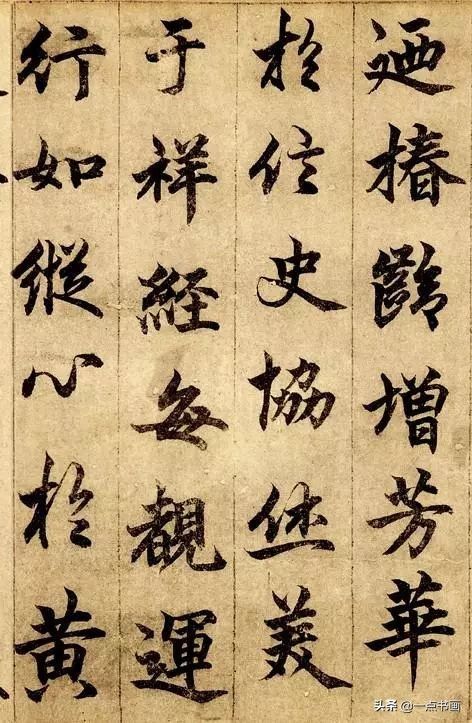 迺椿齡增芳華
於信史協烋美
于祥經每覩運
行如縱心於黃
头条 @一点书画